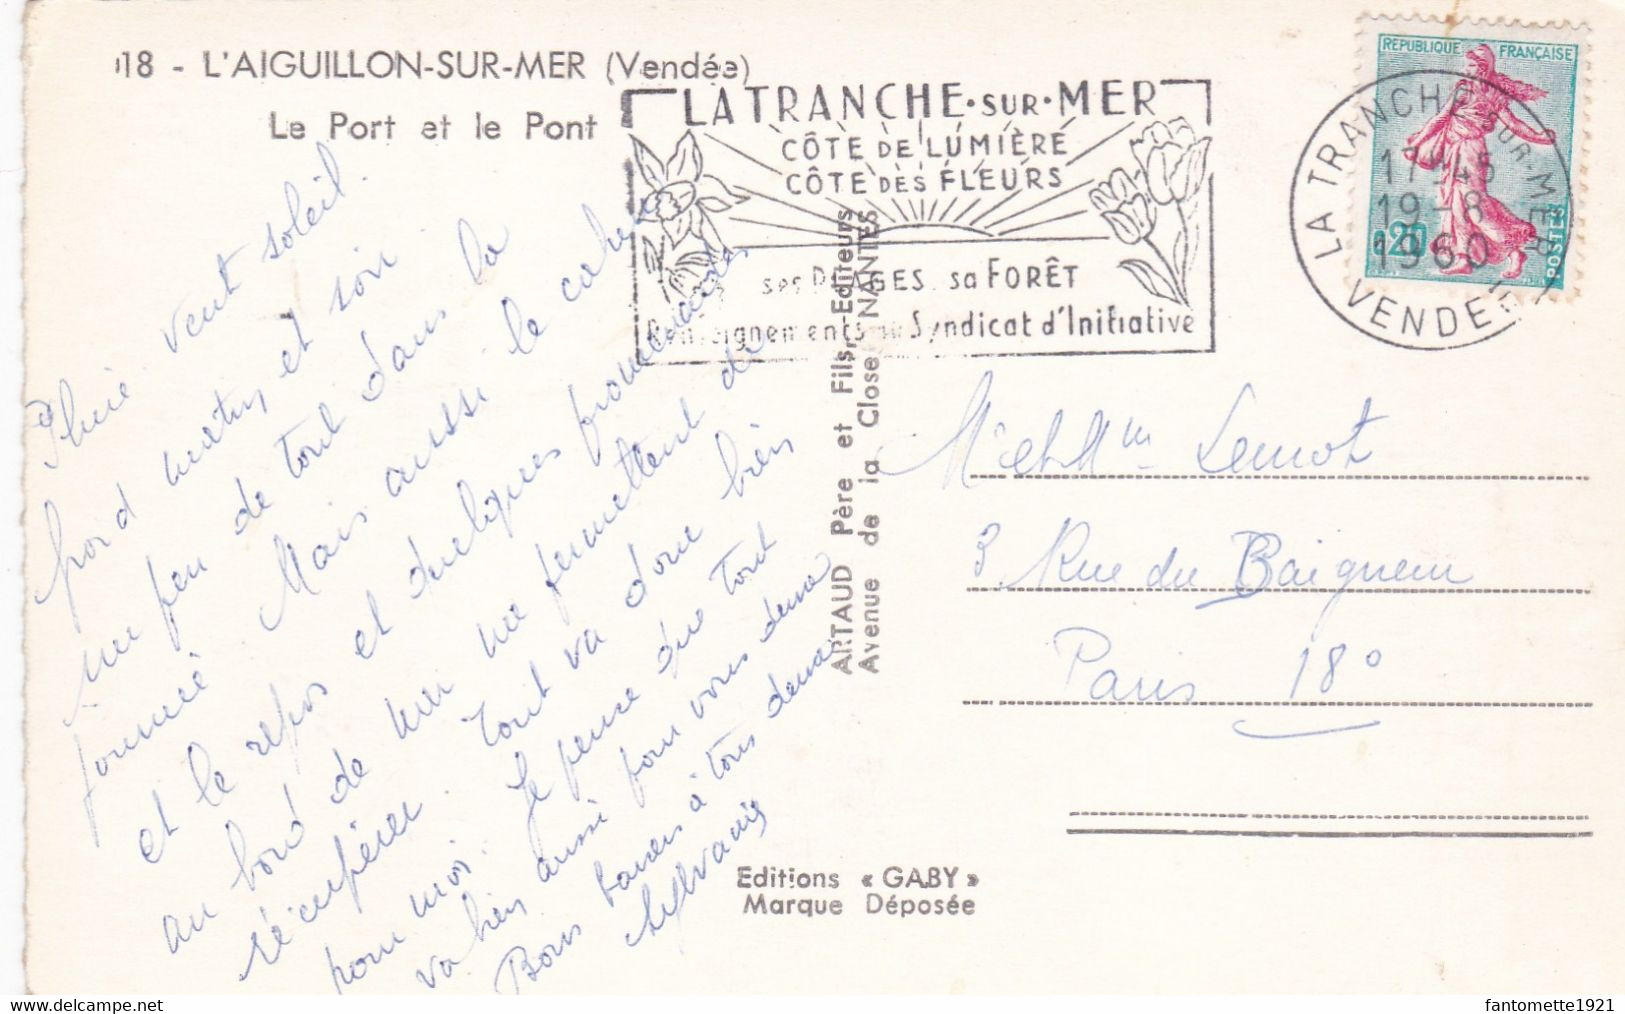 18 - L'AIGUILLON-SUR-MER (Vendée)
Le Port et le Pont
LA TRANCHE·SUR·MER
CÔTE DE LUMIÈRE
CÔTE DES FLEURS
ses PLAGES sa FORÊT
Renseignements au Syndicat d'Initiative
REPUBLIQUE FRANÇAISE
POSTES
LA TRANCHE SUR-MER
17H45
19-8
1960
VENDEE
Pluie vent soleil.
froid matin et soir
un peu de tout dans la
journée. Mais aussi le calme
et le repos et quelques promenades
au bord de mer me permettent de
récupérer. Tout va donc bien
pour moi. Je pense que tout
va bien aussi pour vous deux
Bons baisers à tous deux
ARTAUD Père et Fils, Editeurs
Avenue de la Close NANTES
Mr et Mme Lemot
3 Rue du Baigneur
Paris 18°
Editions « GABY »
Marque Déposée
fantomette1921